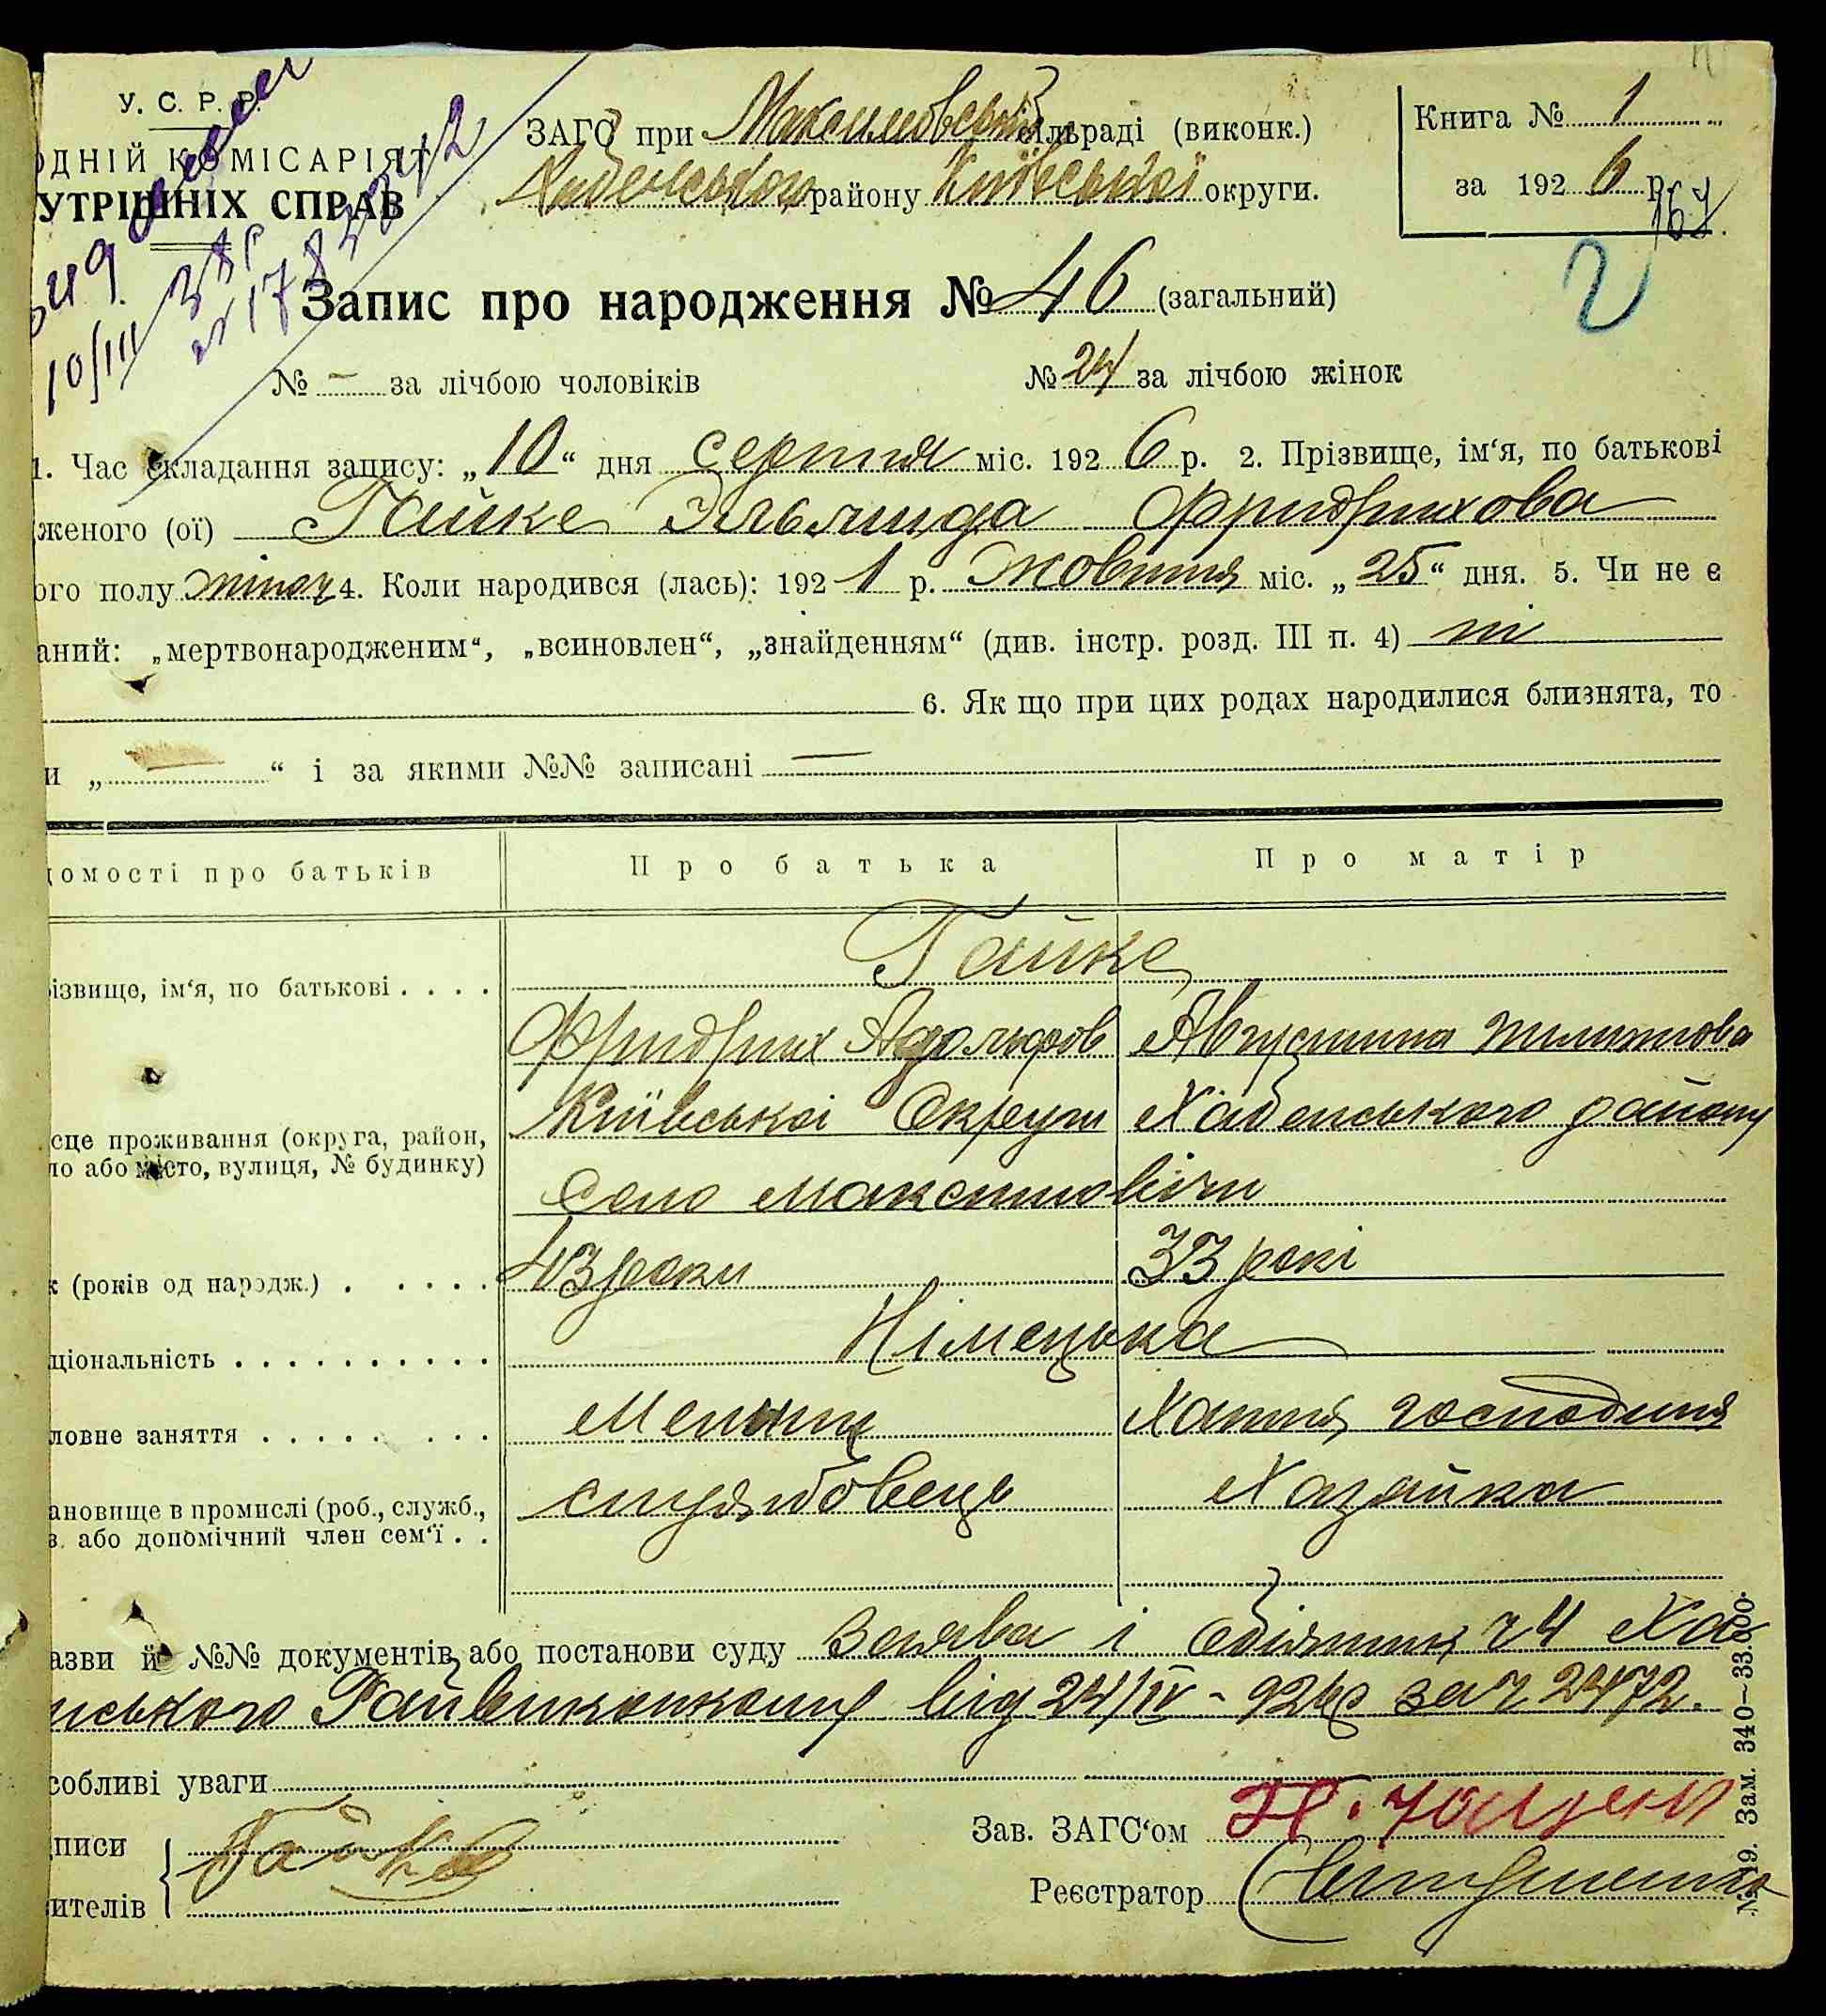 У. С. Р. Р.
ОДНІЙ КОМІСАРІЯТ
УТРІШНІХ СПРАВ
ЗАГС при Максимовській сільраді (виконк.)
Хабенського району Київської округи.
Книга № 1
за 1926 р.
167
2
549
10/III
Запис про народження № 46 (загальний)
№ - за лічбою чоловіків № 24 за лічбою жінок
1. Час складання запису: „10“ дня серпня міс. 1926 р. 2. Прізвище, ім‘я, по батькові
женого (ої) Гайке Эльлинда Фридрихова
ого полу жіноч 4. Коли народився (лась): 1921 р. Жовтня міс. „25“ дня. 5. Чи не є
аний: „мертвонародженим“, „всиновлен“, „знайденням“ (див. інстр. розд. III п. 4) ні
6. Як що при цих родах народилися близнята, то
и „ — “ і за якими №№ записані —
домості про батьків Про батька Про матір
різвище, ім‘я, по батькові . . . . Гайке
Фридрих Адольфов Августина
сце проживання (округа, район, Київськоі Округи Хабенського району
ло або місто, вулиця, № будинку)
Село Максимовічи
к (років од народж.) . . . . . 43 роки 33 рокі
ціональність . . . . . . . . . . . Німецька
ловне заняття . . . . . . . . Мельник Хатня господиня
ановище в промислі (роб., служб., службовець Хазяйка
з. або допомічний член сем‘ї . .
азви й №№ документів або постанови суду Заява і Обіжник ч 4 Хабе
нського Райвиконкому від 24/IV - 926р за ч 2472.
собливі уваги
писи Гайке
ителів
Зав. ЗАГС‘ом
Реєстратор
№ 19. Зам. 340—33.000.